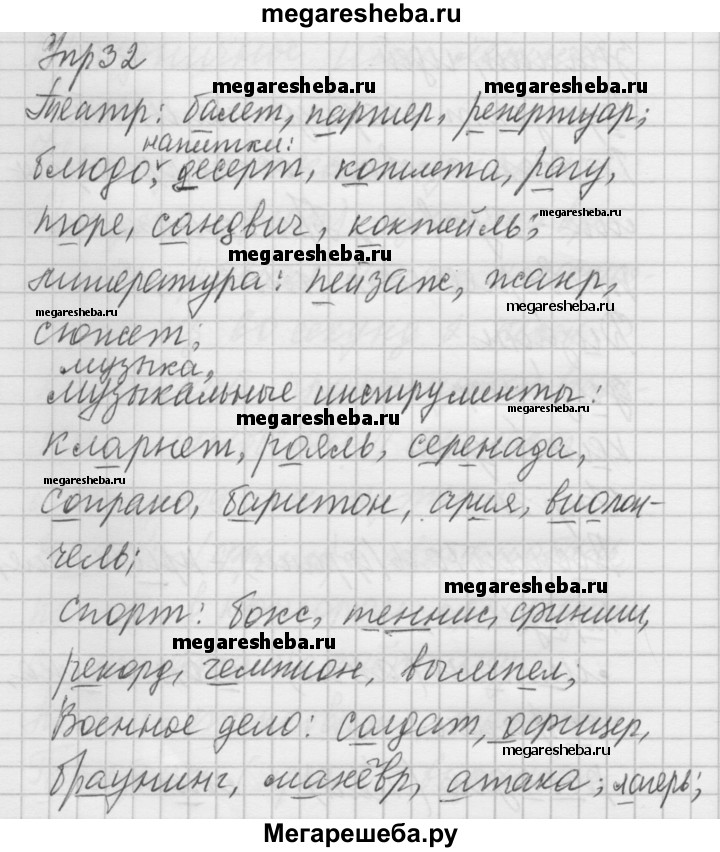 megaresheba.ru
Упр 32
megaresheba.ru megaresheba.ru
Театр: балет, партер, репертуар;
напитки:
блюдо, десерт, котлета, рагу,
пюре, сандвич, коктейль;
megaresheba.ru
megaresheba.ru
литература: пейзаж, жанр,
megaresheba.ru megaresheba.ru
сюжет;
музыка,
музыкальные инструменты:
megaresheba.ru megaresheba.ru
кларнет, рояль, серенада,
megaresheba.ru
сопрано, баритон, ария, виолон-
чель;
megaresheba.ru
Спорт: бокс, теннис, финиш,
megaresheba.ru
рекорд, чемпион, вымпел;
Военное дело: солдат, офицер,
megaresheba.ru
браунинг, манёвр, атака; лагерь;
Мегарешеба.ру